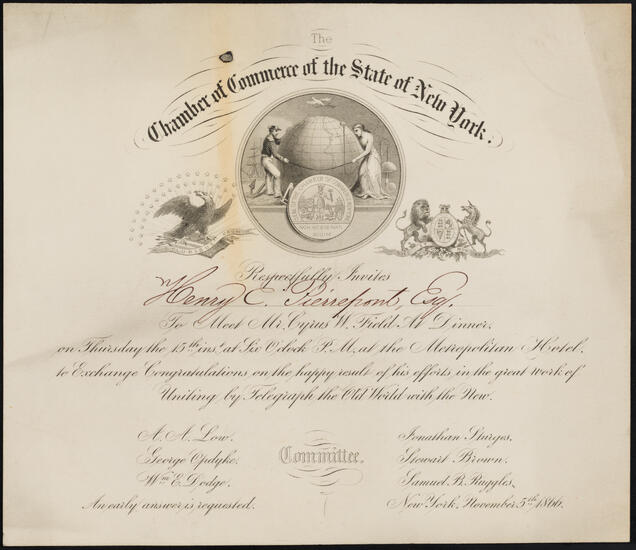 The
Chamber of Commerce of the State of New York.
Respectfully Invites
Henry E. Pierrepont, Esq.
To Meet Mr. Cyrus W. Field At Dinner,
on Thursday the 15th inst. at Six O'clock P.M., at the Metropolitan Hotel,
to Exchange Congratulations on the happy result of his efforts in the great work of
Uniting by Telegraph the Old World with the New.
A. A. Low.
George Opdyke.
Wm. E. Dodge.
Committee.
Jonathan Sturges.
Stewart Brown.
Samuel B. Ruggles.
An early answer is requested.
New York, November 5th 1866.